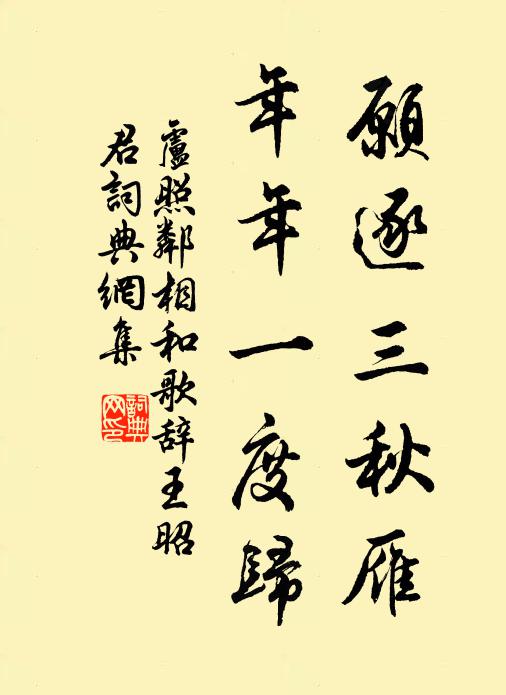 願逐三秋雁
年年一度歸
盧照鄰相和歌辞王昭
君詞典網集
詞典
网印